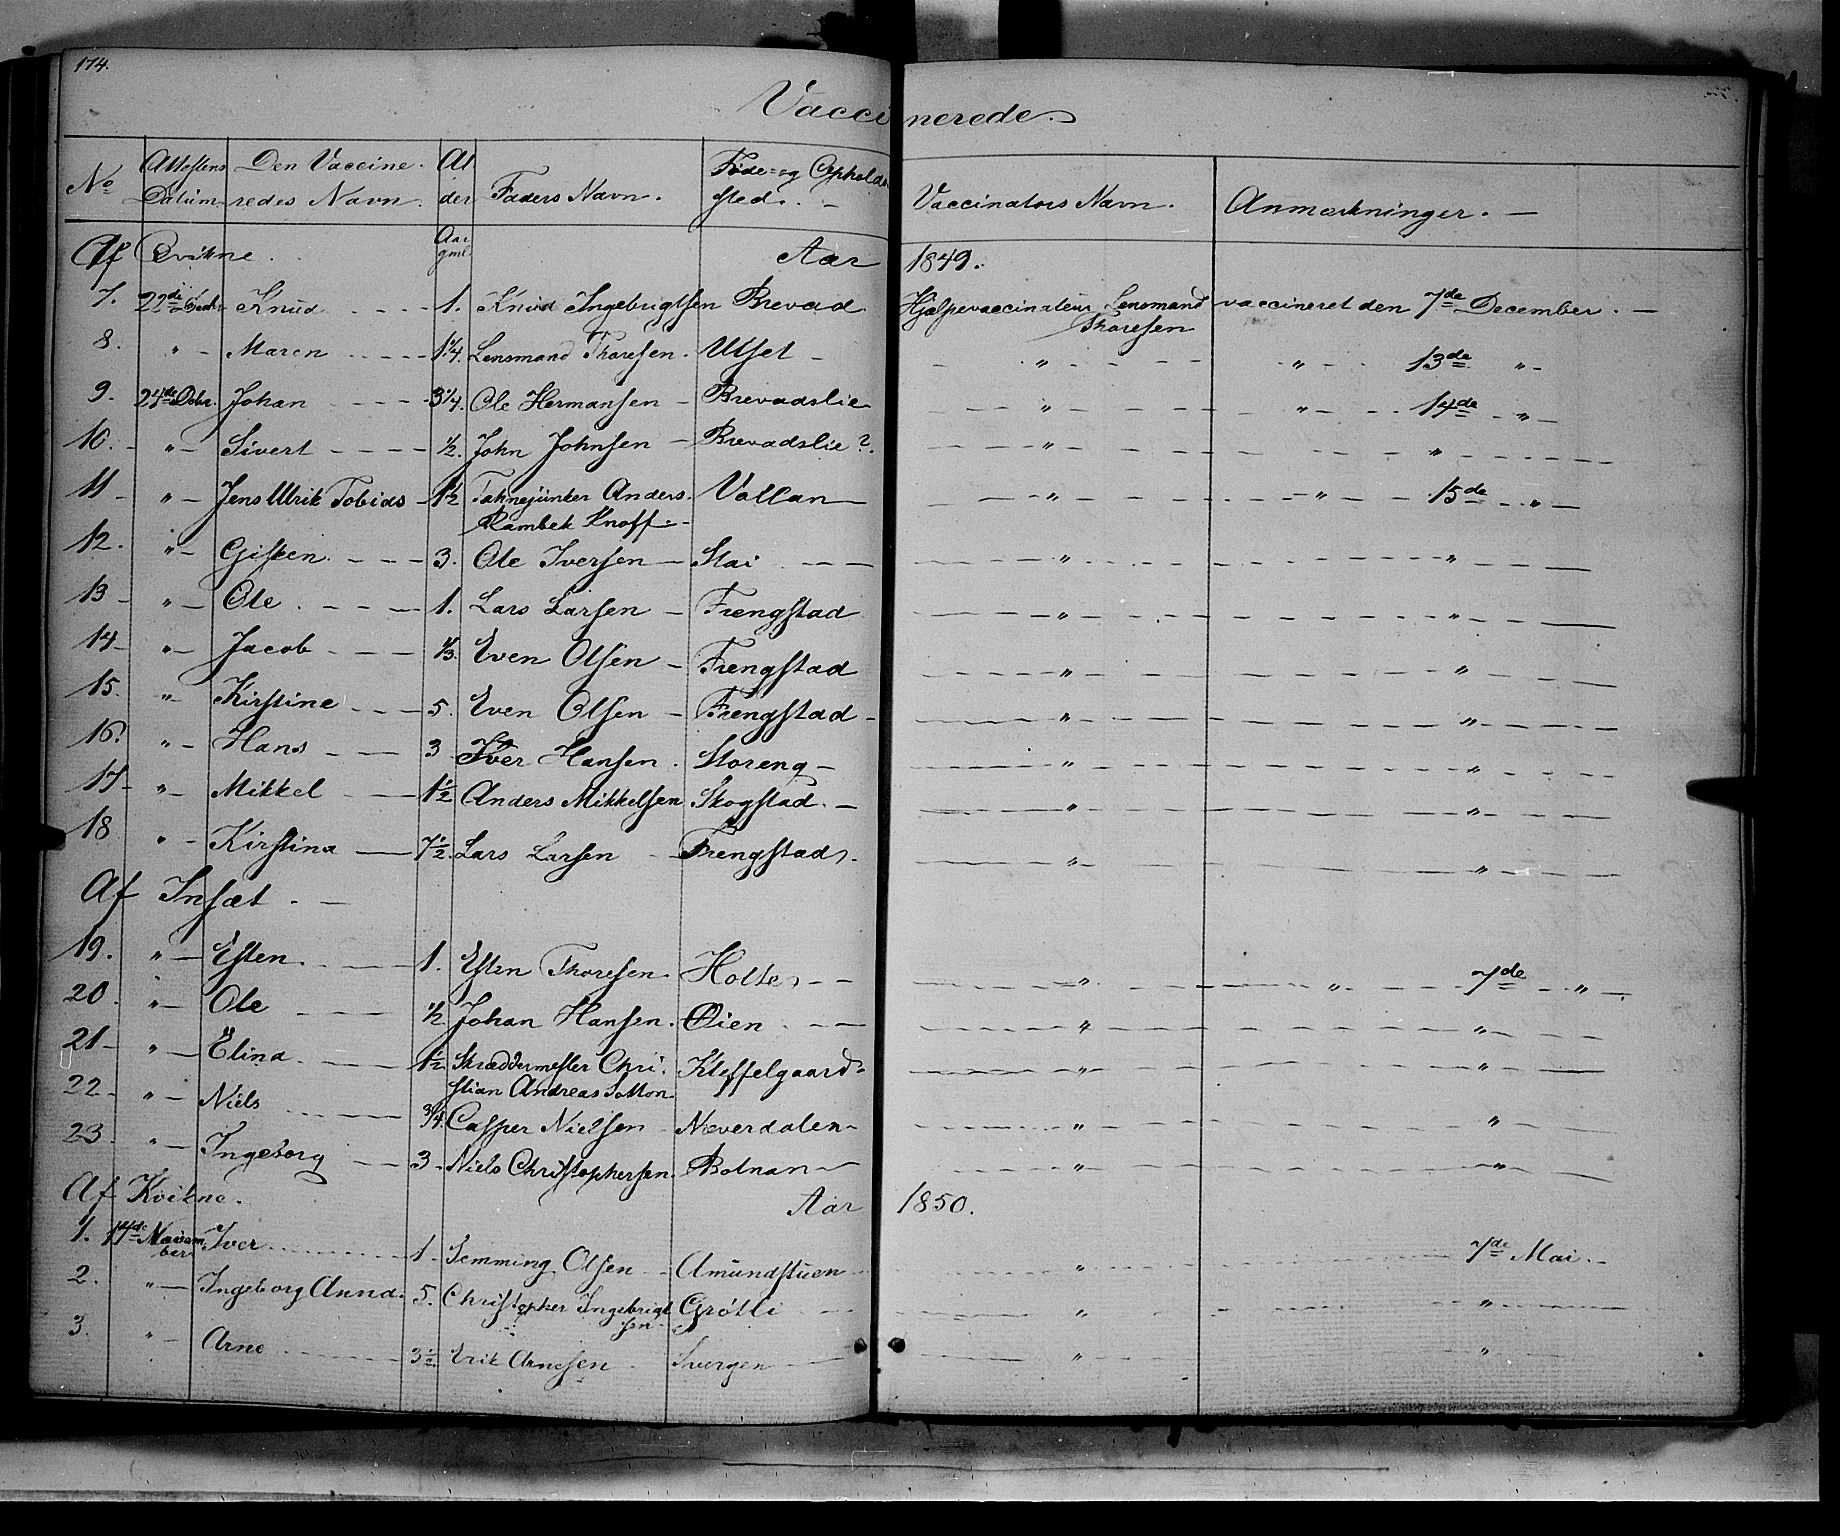 174.
Vaccinerede.
No Attestens Datum Den Vaccineredes Navn. Alder Faders Navn. Føde- og Opholdssted. Vaccinators Navn. Anmærkninger.
Af Qvikne. Aar gml. Aar 1849.
7. 22de Decbr Knud 1. Knud Ingebrigtsen Brevad Hjælpevaccinateur Lensmand Thoresen vaccineret den 7de December.
8. " Maren 1 1/4. Lensmand Thoresen. Utset " " 13de "
9. 24de Decbr. Johan 3/4. Ole Hermansen Brevadslie " " 14de "
10. " Sivert 1/2. John Johnsen Brevadslie ?. " "
11 " Jens Ulrik Tobias 1 1/2 Fahnejunker Anders Rambek Knoff. Vollan " " 15de "
12. " Gisken 3. Ole Iversen Stai " "
13 " Ole 1. Lars Larsen Frengstad " "
14 " Jacob 1/3. Even Olsen Frengstad " "
15. " Kirstine 5. Even Olsen Frengstad " "
16. " Hans 3 Iver Hansen. Storeng " "
17 " Mikkel 1 1/2 Anders Mikkelsen Skogstad. " "
18 " Kirstina 7 1/2. Lars Larsen Frengstad. " "
Af Insæt.
19. " Esten. 1. Esten Thoresen. Holte " " 7de "
20 " Ole 1/2 Johan Hansen. Øien " "
21 " Elina 1 1/2 Skræddermester Christian Andreas Kleffelgaard " "
22 " Niels 3/4. Casper Nielsen Næverdalen " "
23. " Ingeborg 3 Niels Christophersen. Botnan " "
Af Kvikne. Aar 1850.
1. 14de November Iver 1 Semming Olsen Amundstuen " 7de Mai.
2. " Ingeborg Anna. 5. Christopher Ingebrigtsen Grøtli " "
3. " Arne 3 1/2 Erik Arnesen Svergen " "